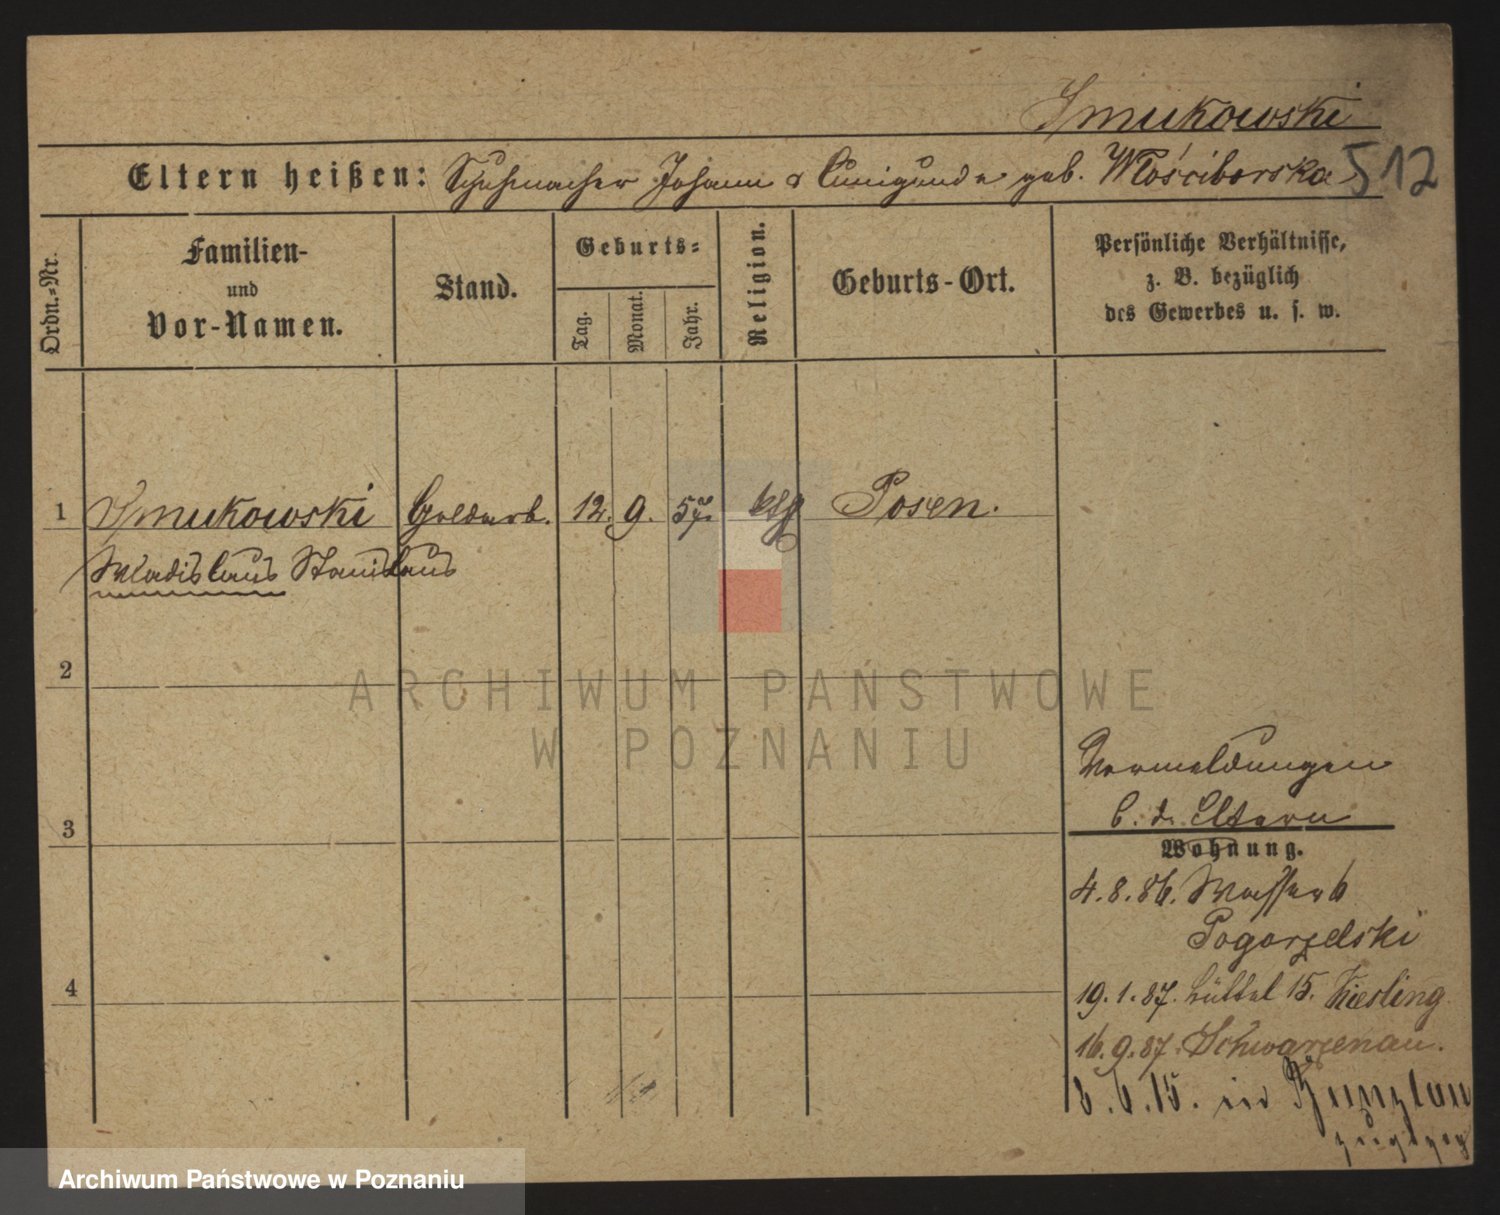 Smukowski
Eltern heißen: Schuhmacher Johann & Cunigunde geb. Włościborska 512
Ordn.-Nr.
Familien-
und
Vor-Namen.
Stand.
Geburts-
Tag.
Monat.
Jahr.
Religion.
Geburts-Ort.
Persönliche Verhältnisse,
z. B. bezüglich
des Gewerbes u. s. w.
1 Smukowski Goldarb. 12. 9. 57. kth Posen.
Wladislaus Stanislaus
2
ARCHIWUM PAŃSTWOWE
W POZNANIU
Vormeldungen
b. d. Eltern
3
Wohnung.
4. 8. 86. Wasserb
Pogorzelski
4
19. 1. 87. Lüttel 15. Kiesling
16. 9. 87. Schwarzenau.
8. 6. 15. in Bunzlau
Archiwum Państwowe w Poznaniu